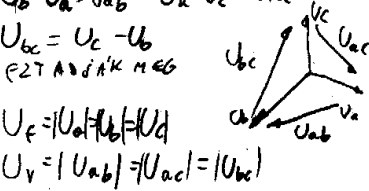 U_bc = U_c - U_b
EZT ADJÁK MEG
U_f = |U_a| = |U_b| = |U_c|
U_v = |U_ab| = |U_ac| = |U_bc|
U_c
U_ac
U_bc
U_b
U_a
U_ab